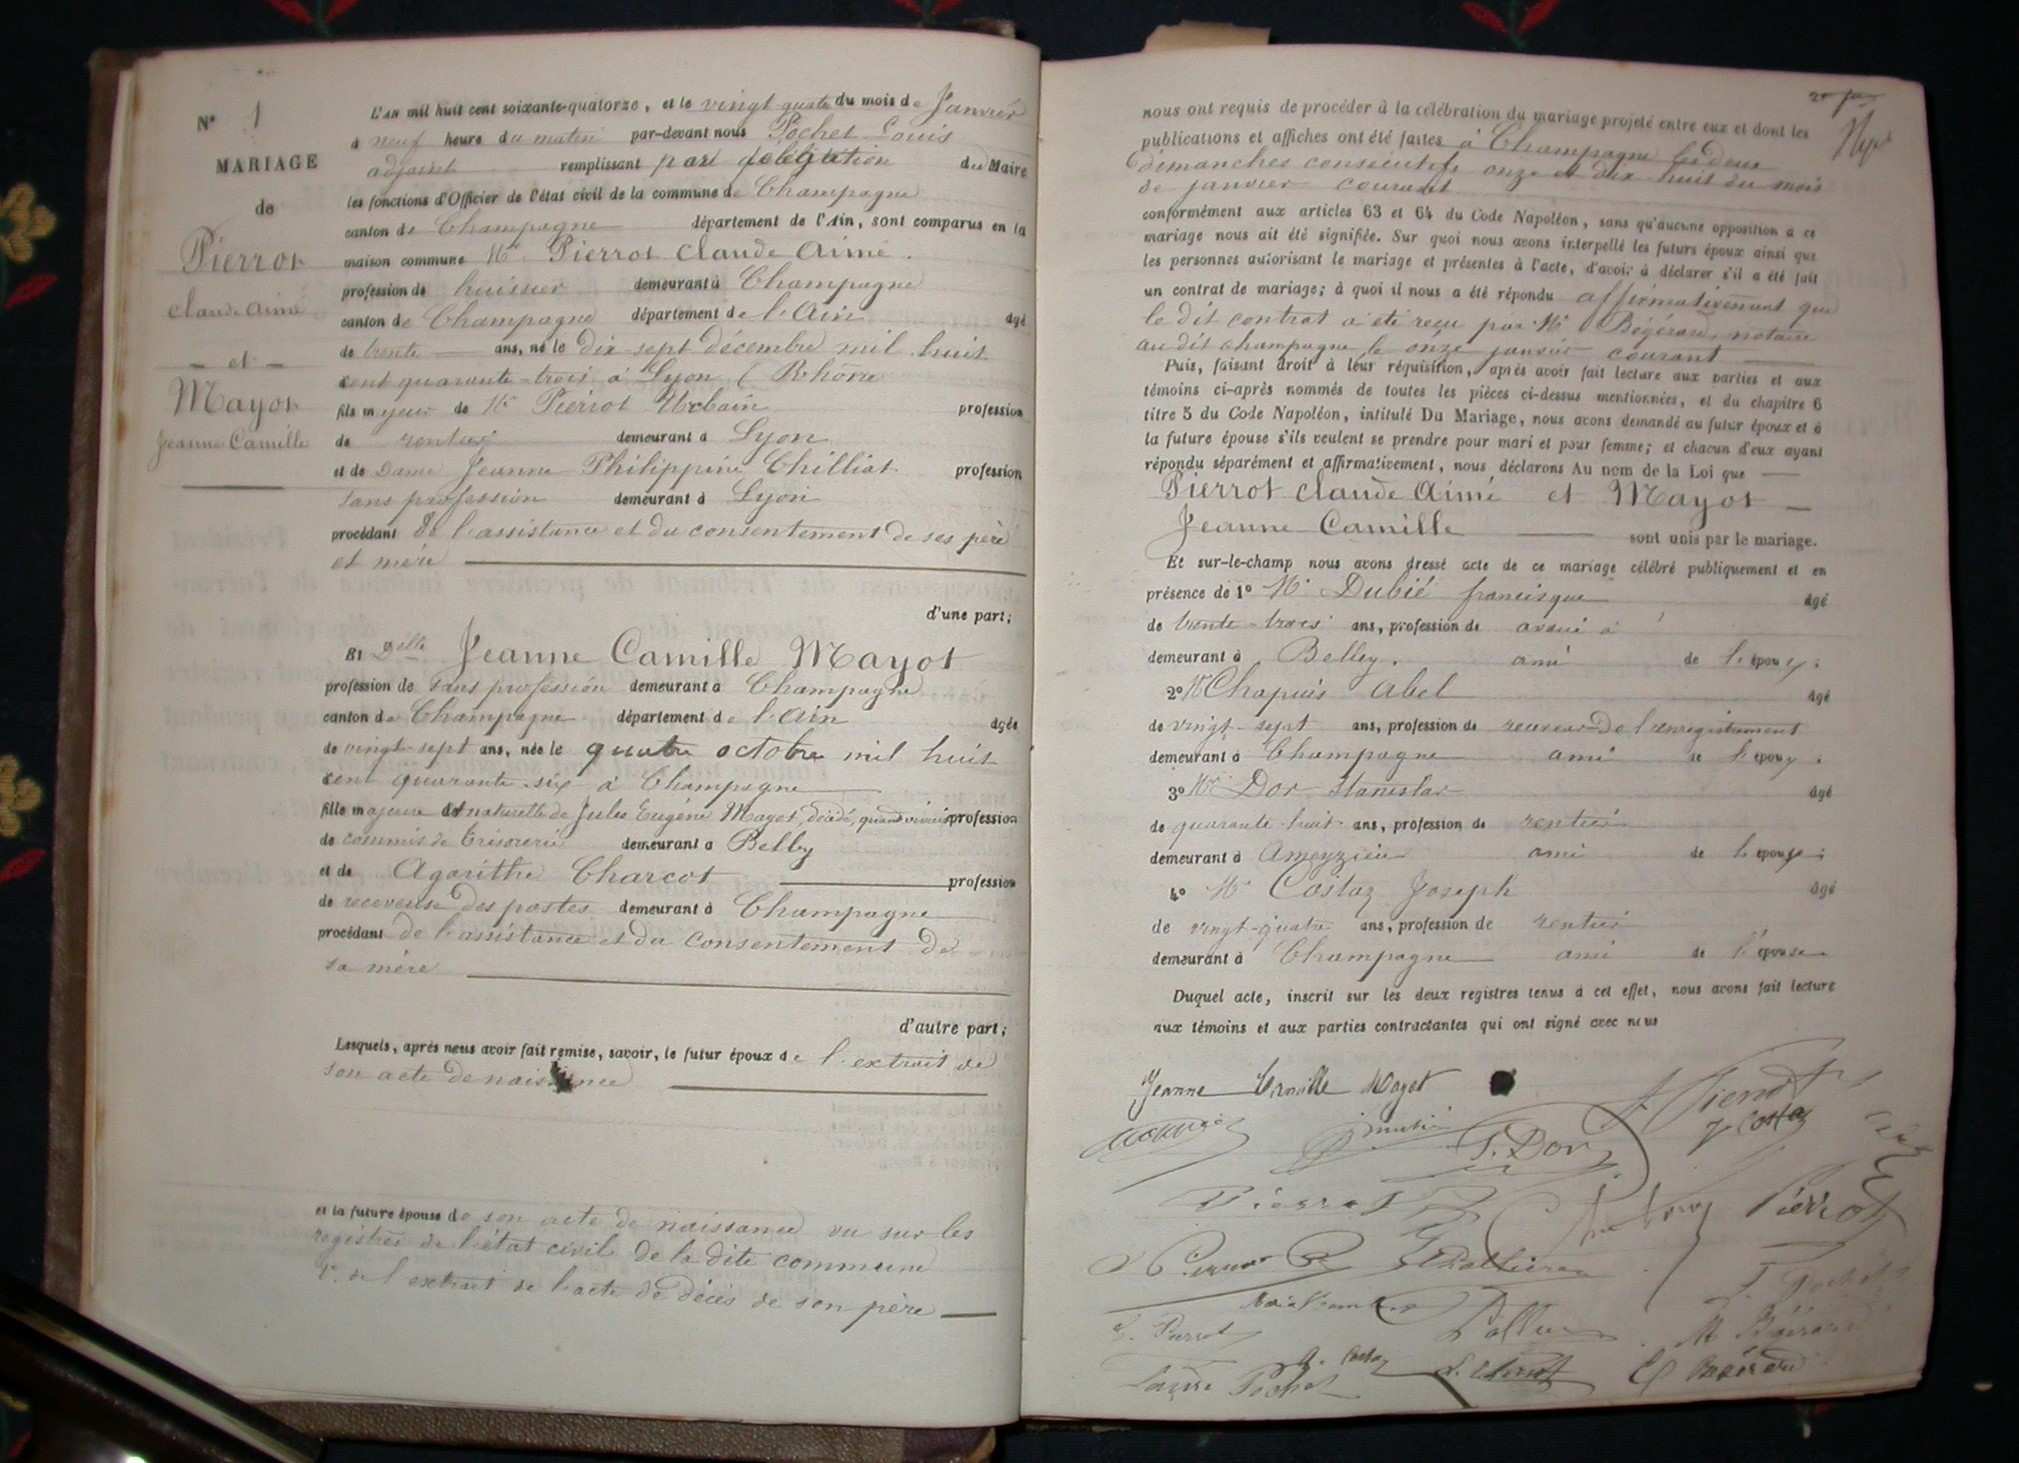 N° 1
MARIAGE
de
Pierrot
Claude Aimé
— et —
Mayot
Jeanne Camille
L'AN mil huit cent soixante-quatorze, et le vingt quatre du mois de Janvier
à neuf heure du matin par-devant nous Pochet Louis
adjoint remplissant par délégation du Maire
les fonctions d'Officier de l'état civil de la commune de Champagne
canton de Champagne département de l'Ain, sont comparus en la
maison commune Mr Pierrot Claude Aimé.
profession de huissier demeurant à Champagne
canton de Champagne département de l'Ain âgé
de trente ans, né le dix-sept décembre mil huit
cent quarante-trois à Lyon (Rhône
fils majeur de Mr Pierrot Urbain profession
de rentier demeurant à Lyon
et de Dame Jeanne Philippine Chilliat profession
sans profession demeurant à Lyon
procédant de l'assistance et du consentement de ses père
et mère
d'une part;
Et Delle Jeanne Camille Mayot
profession de sans profession demeurant à Champagne
canton de Champagne département de l'Ain âgée
de vingt-sept ans, née le quatre octobre mil huit
cent quarante-six à Champagne
fille majeure et naturelle de Jules Eugène Mayot, décédé, quand vivait profession
de commis de trésorerie demeurant à Belley
et de Agarithe Charcot profession
de receveuse des postes demeurant à Champagne
procédant de l'assistance et du consentement de
sa mère
d'autre part;
Lesquels, après nous avoir fait remise, savoir, le futur époux de l'extrait de
son acte de naissance
et la future épouse de son acte de naissance vu sur les
registres de l'état civil de la dite commune
de l'extrait de l'acte de décès de son père —
nous ont requis de procéder à la célébration du mariage projeté entre eux et dont les
publications et affiches ont été faites à Champagne les deux
dimanches consécutifs onze et dix huit du mois
de janvier courant
conformément aux articles 63 et 64 du Code Napoléon, sans qu'aucune opposition à ce
mariage nous ait été signifiée. Sur quoi nous avons interpellé les futurs époux ainsi que
les personnes autorisant le mariage et présentes à l'acte, d'avoir à déclarer s'il a été fait
un contrat de mariage; à quoi il nous a été répondu affirmativement que
le dit contrat a été reçu par Mr notaire
au dit Champagne le onze janvier courant
Puis, faisant droit à leur réquisition, après avoir fait lecture aux parties et aux
témoins ci-après nommés de toutes les pièces ci-dessus mentionnées, et du chapitre 6
titre 5 du Code Napoléon, intitulé Du Mariage, nous avons demandé au futur époux et à
la future épouse s'ils veulent se prendre pour mari et pour femme; et chacun d'eux ayant
répondu séparément et affirmativement, nous déclarons Au nom de la Loi que —
Pierrot Claude Aimé et Mayot —
Jeanne Camille — sont unis par le mariage.
Et sur-le-champ nous avons dressé acte de ce mariage célébré publiquement et en
présence de 1° Mr Dubié francisque âgé
de trente-trois ans, profession de avoué à
demeurant à Belley. ami de l'époux;
2° Mr Chapuis Abel âgé
de vingt-sept ans, profession de receveur de l'enregistrement
demeurant à Champagne ami de l'époux;
3° Mr Dor Stanislas âgé
de quarante huit ans, profession de rentier
demeurant à Ameyzieu ami de l'épouse;
4° Mr Costaz Joseph âgé
de vingt-quatre ans, profession de rentier
demeurant à Champagne ami de l'épouse
Duquel acte, inscrit sur les deux registres tenus à cet effet, nous avons fait lecture
aux témoins et aux parties contractantes qui ont signé avec nous
Jeanne Camille Mayot
J Costaz
S. Dor
Pierrot
Pierrot
L. Pochet
Pochet